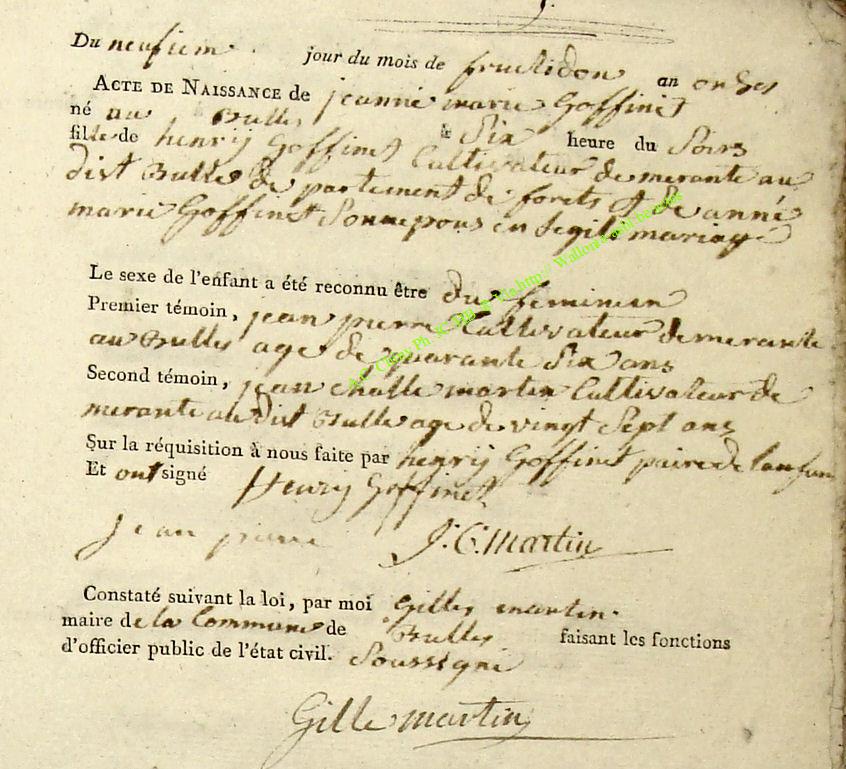 Du neufiem jour du mois de fructidor an onzes
ACTE DE NAISSANCE de jeanne marie Goffinet
né au Bulles à Six heure du Soirs
fille de henrÿ Goffinet Cultivateur demerante au
dist Bulles de partement de forets & de anné
marie Goffinet Son nepous en legill mariage
Le sexe de l'enfant a été reconnu être du feminen
Premier témoin, jean pierre Cultivateur demerante
au Bulles age de quarante Six ans
Second témoin, jean Challe martin Cultivateur de
merante au dist Bulle age de vingt Sept ans
Sur la réquisition à nous faite par henrÿ Goffinet paire de lanfan
Et ont signé Henrÿ Goffinet
jean pierre J.C. martin
Constaté suivant la loi, par moi Gilles martin
maire de la Commune de Bulles faisant les fonctions
d'officier public de l'état civil. Soussigné
Gille martin